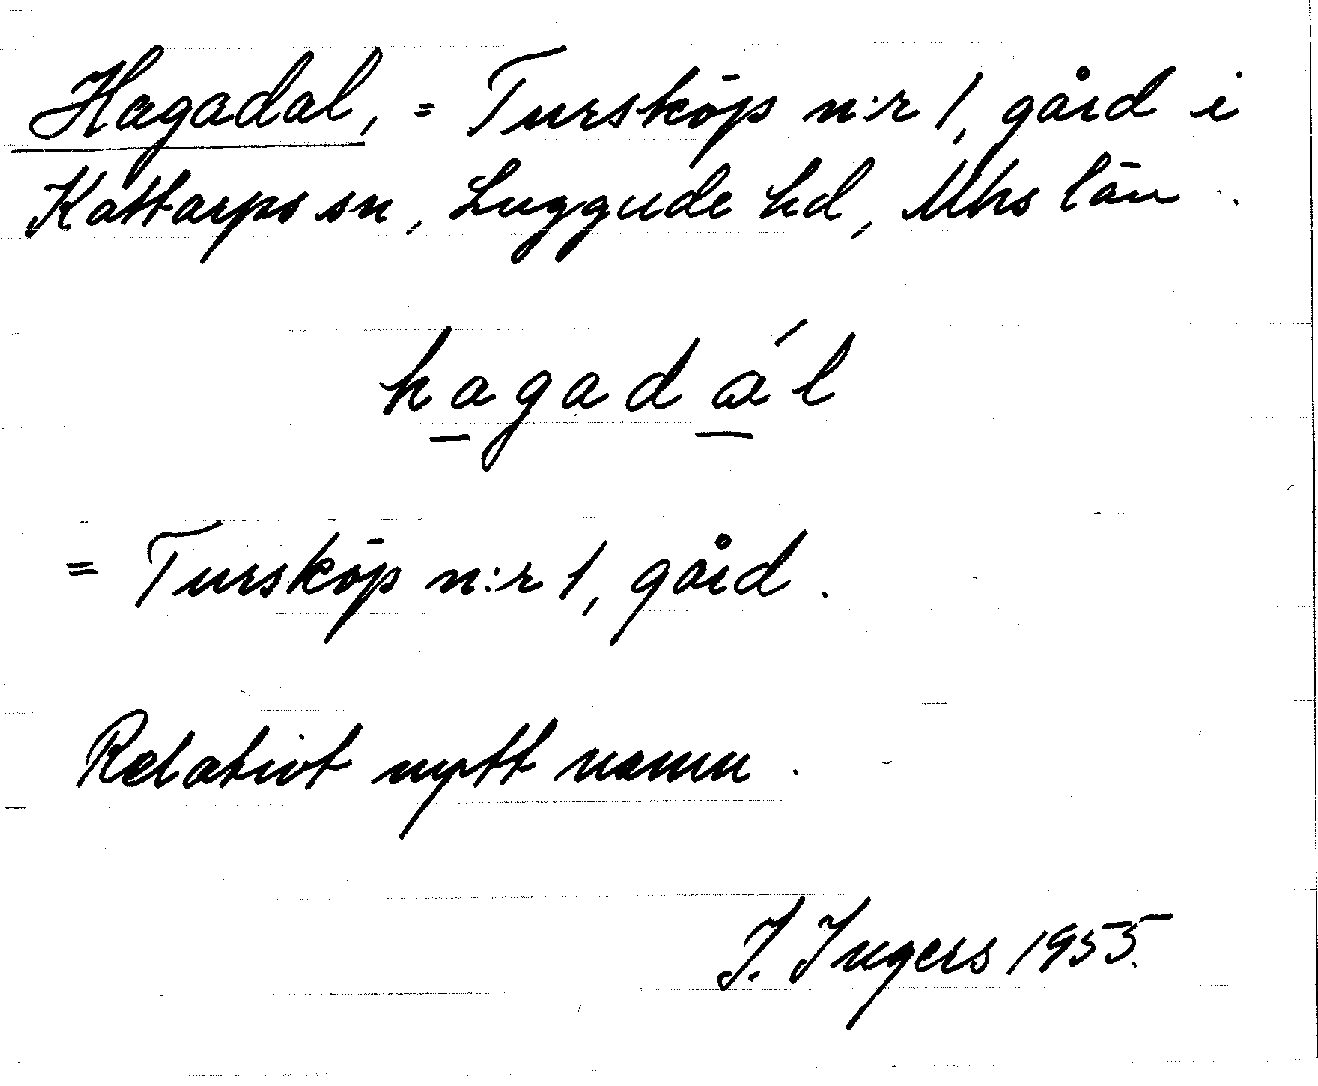 Hagadal, = Tursköp n:r 1, gård i
Kattarps sn, Luggude hd, Mhs län.
hagadál
= Tursköp n:r 1, gård.
Relativt nytt namn.
I. Ingers 1955.